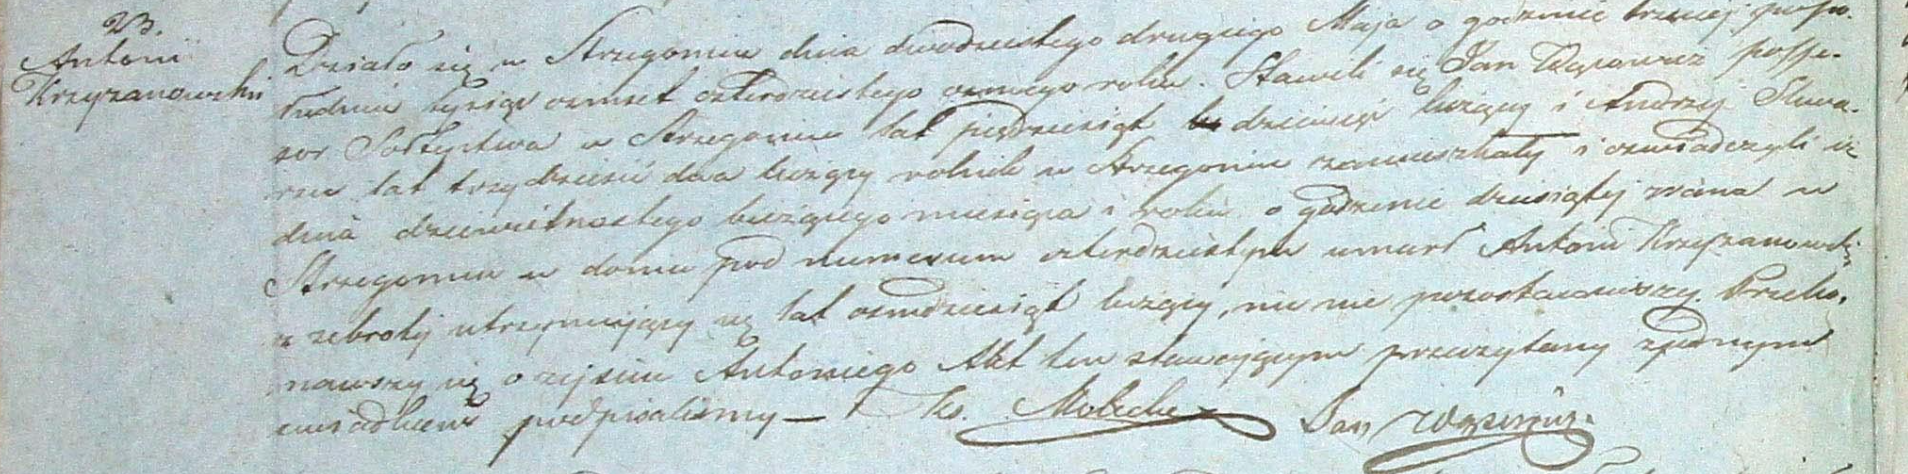 23.
Antoni
Krzyzanowski
Działo się w Strzegomiu dnia dwudziestego drugiego Maja o godzinie trzeciej popo-
łudniu tysiąc osmset czterdziestego osmego roku. Stawili się Jan posse-
sor Sołtystwa w Strzegomiu lat pięćdziesiąt dziewięć liczący i Andrzej
lat trzydzieści dwa liczący rolnik w Strzegomiu zamieszkały i oswiadczyli iż
dnia dziewiętnastego bieżącego miesiąca i roku o godzinie dziesiątej zrana w
Strzegomiu w domu pod numerem czterdziestym umarł Antoni Krzyzanowski
z zebroty utrzymujący się lat osmdziesiąt liczący, nic nie pozostawiwszy. Przeko-
nawszy się o zejściu Antoniego Akt ten stawającym przeczytany z jednym
swiadkiem podpisalismy — Ks. Jan